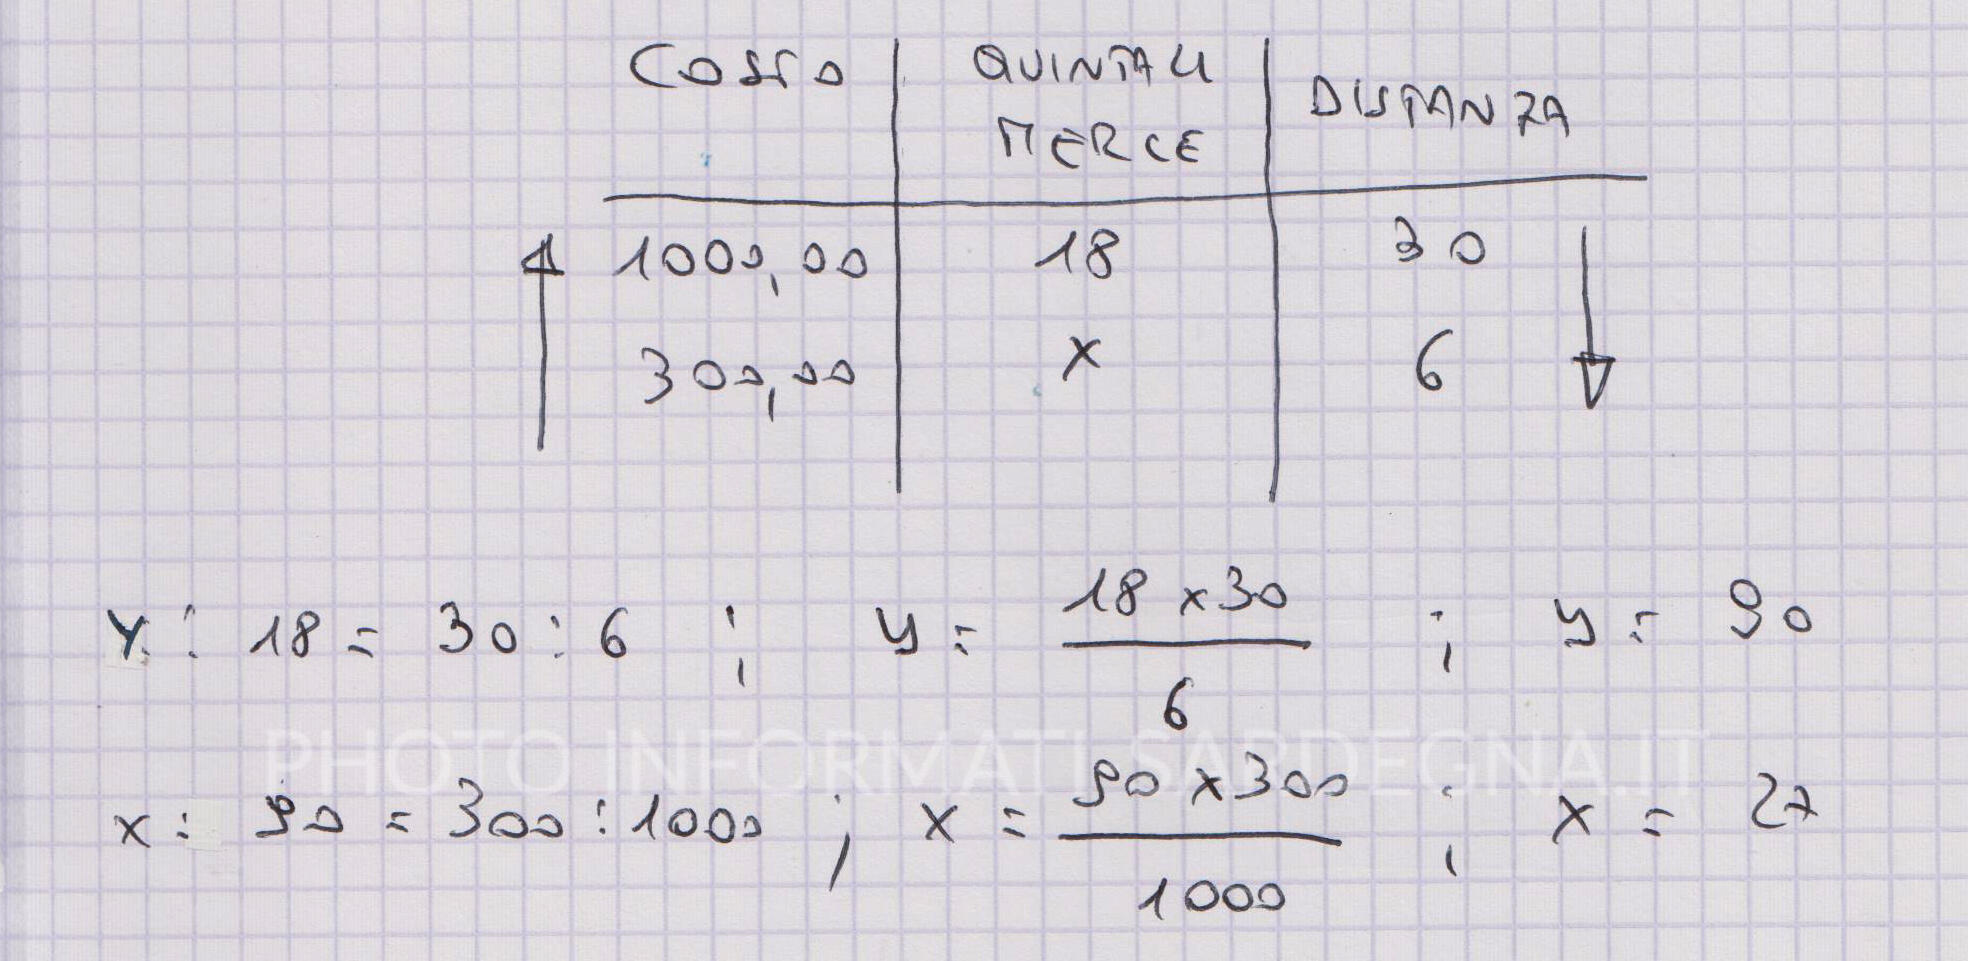 COSTO QUINTALI MERCE DISTANZA
1000,00 18 30
300,00 x 6
Y : 18 = 30 : 6 ; y = 18 x 30 / 6 ; y = 90
PHOTO INFORMATI-SARDEGNA.IT
x : 90 = 300 : 1000 ; x = 90 x 300 / 1000 ; x = 27